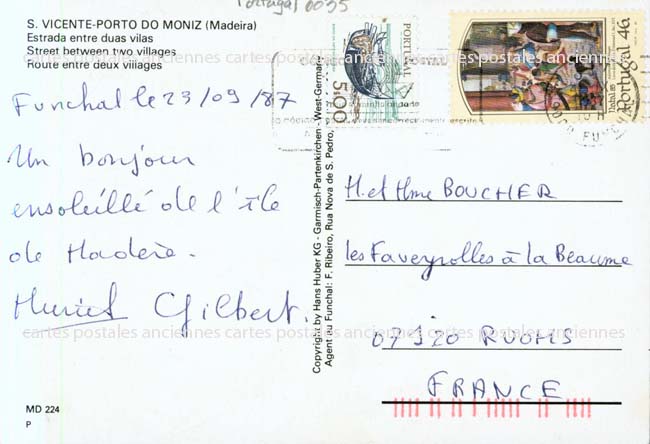 Portugal 0035
S. VICENTE-PORTO DO MONIZ (Madeira)
Estrada entre duas vilas
Street between two villages
Route entre deux villages
Funchal le 23/09/87
Un bonjour
ensoleillé de l'île
de Madère.
Muriel Gilbert.
MD 224
P
Copyright by Hans Huber KG - Garmisch-Partenkirchen - West-Germany
Agent du Funchal: F. Ribeiro, Rua Nova de S. Pedro,
5.00
PORTUGAL
Natal 85
Portugal 46.
M. et Mme BOUCHER
les Faveyrolles à la Beaume
07120 RUOMS
FRANCE
cartes postales anciennes cartes postales anciennes cartes postales anciennes
cartes postales anciennes cartes postales anciennes cartes postales anciennes